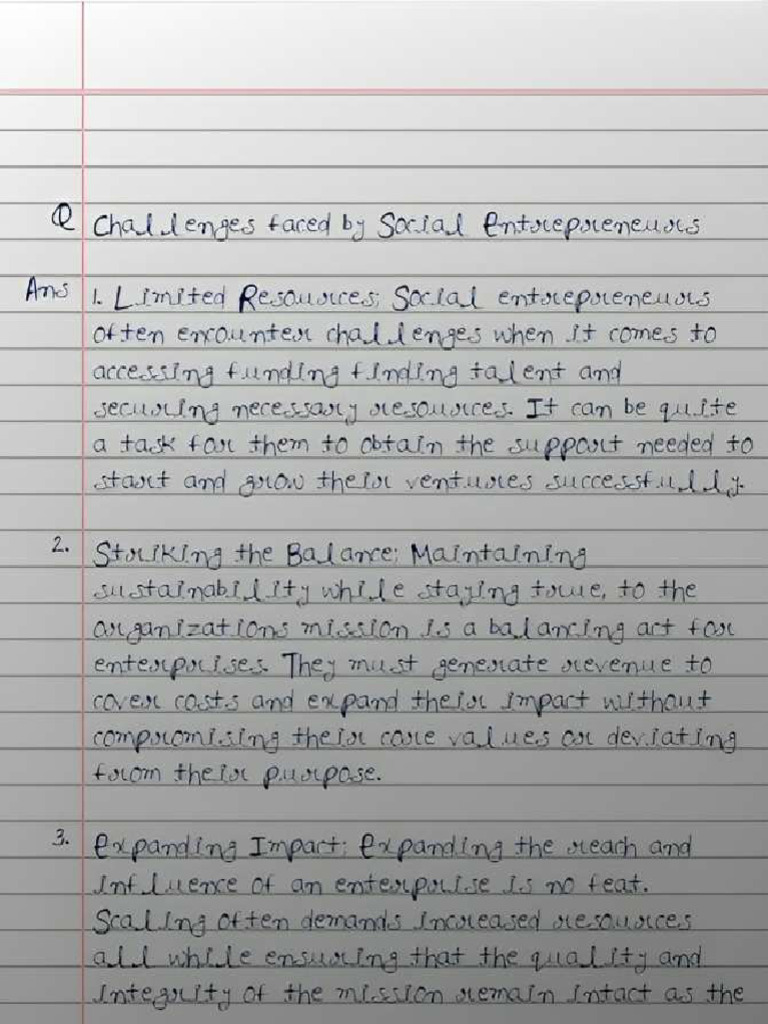 Q Challenges faced by Social Entrepreneurs
Ans 1. Limited Resources; Social entrepreneurs
often encounter challenges when it comes to
accessing funding finding talent and
securing necessary resources. It can be quite
a task for them to obtain the support needed to
start and grow their ventures successfully.
2. Striking the Balance; Maintaining
sustainability while staying true, to the
organizations mission is a balancing act for
enterprises. They must generate revenue to
cover costs and expand their impact without
compromising their core values or deviating
from their purpose.
3. Expanding Impact; Expanding the reach and
influence of an enterprise is no feat.
Scaling often demands increased resources
all while ensuring that the quality and
integrity of the mission remain intact as the